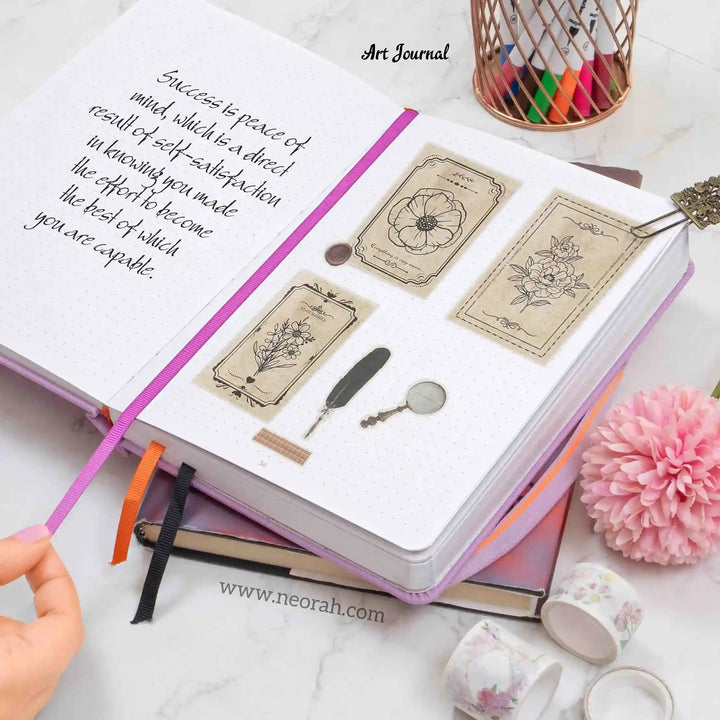 Art Journal
Success is peace of
mind, which is a direct
result of self-satisfaction
in knowing you made
the effort to become
the best of which
you are capable.
38
www.neorah.com